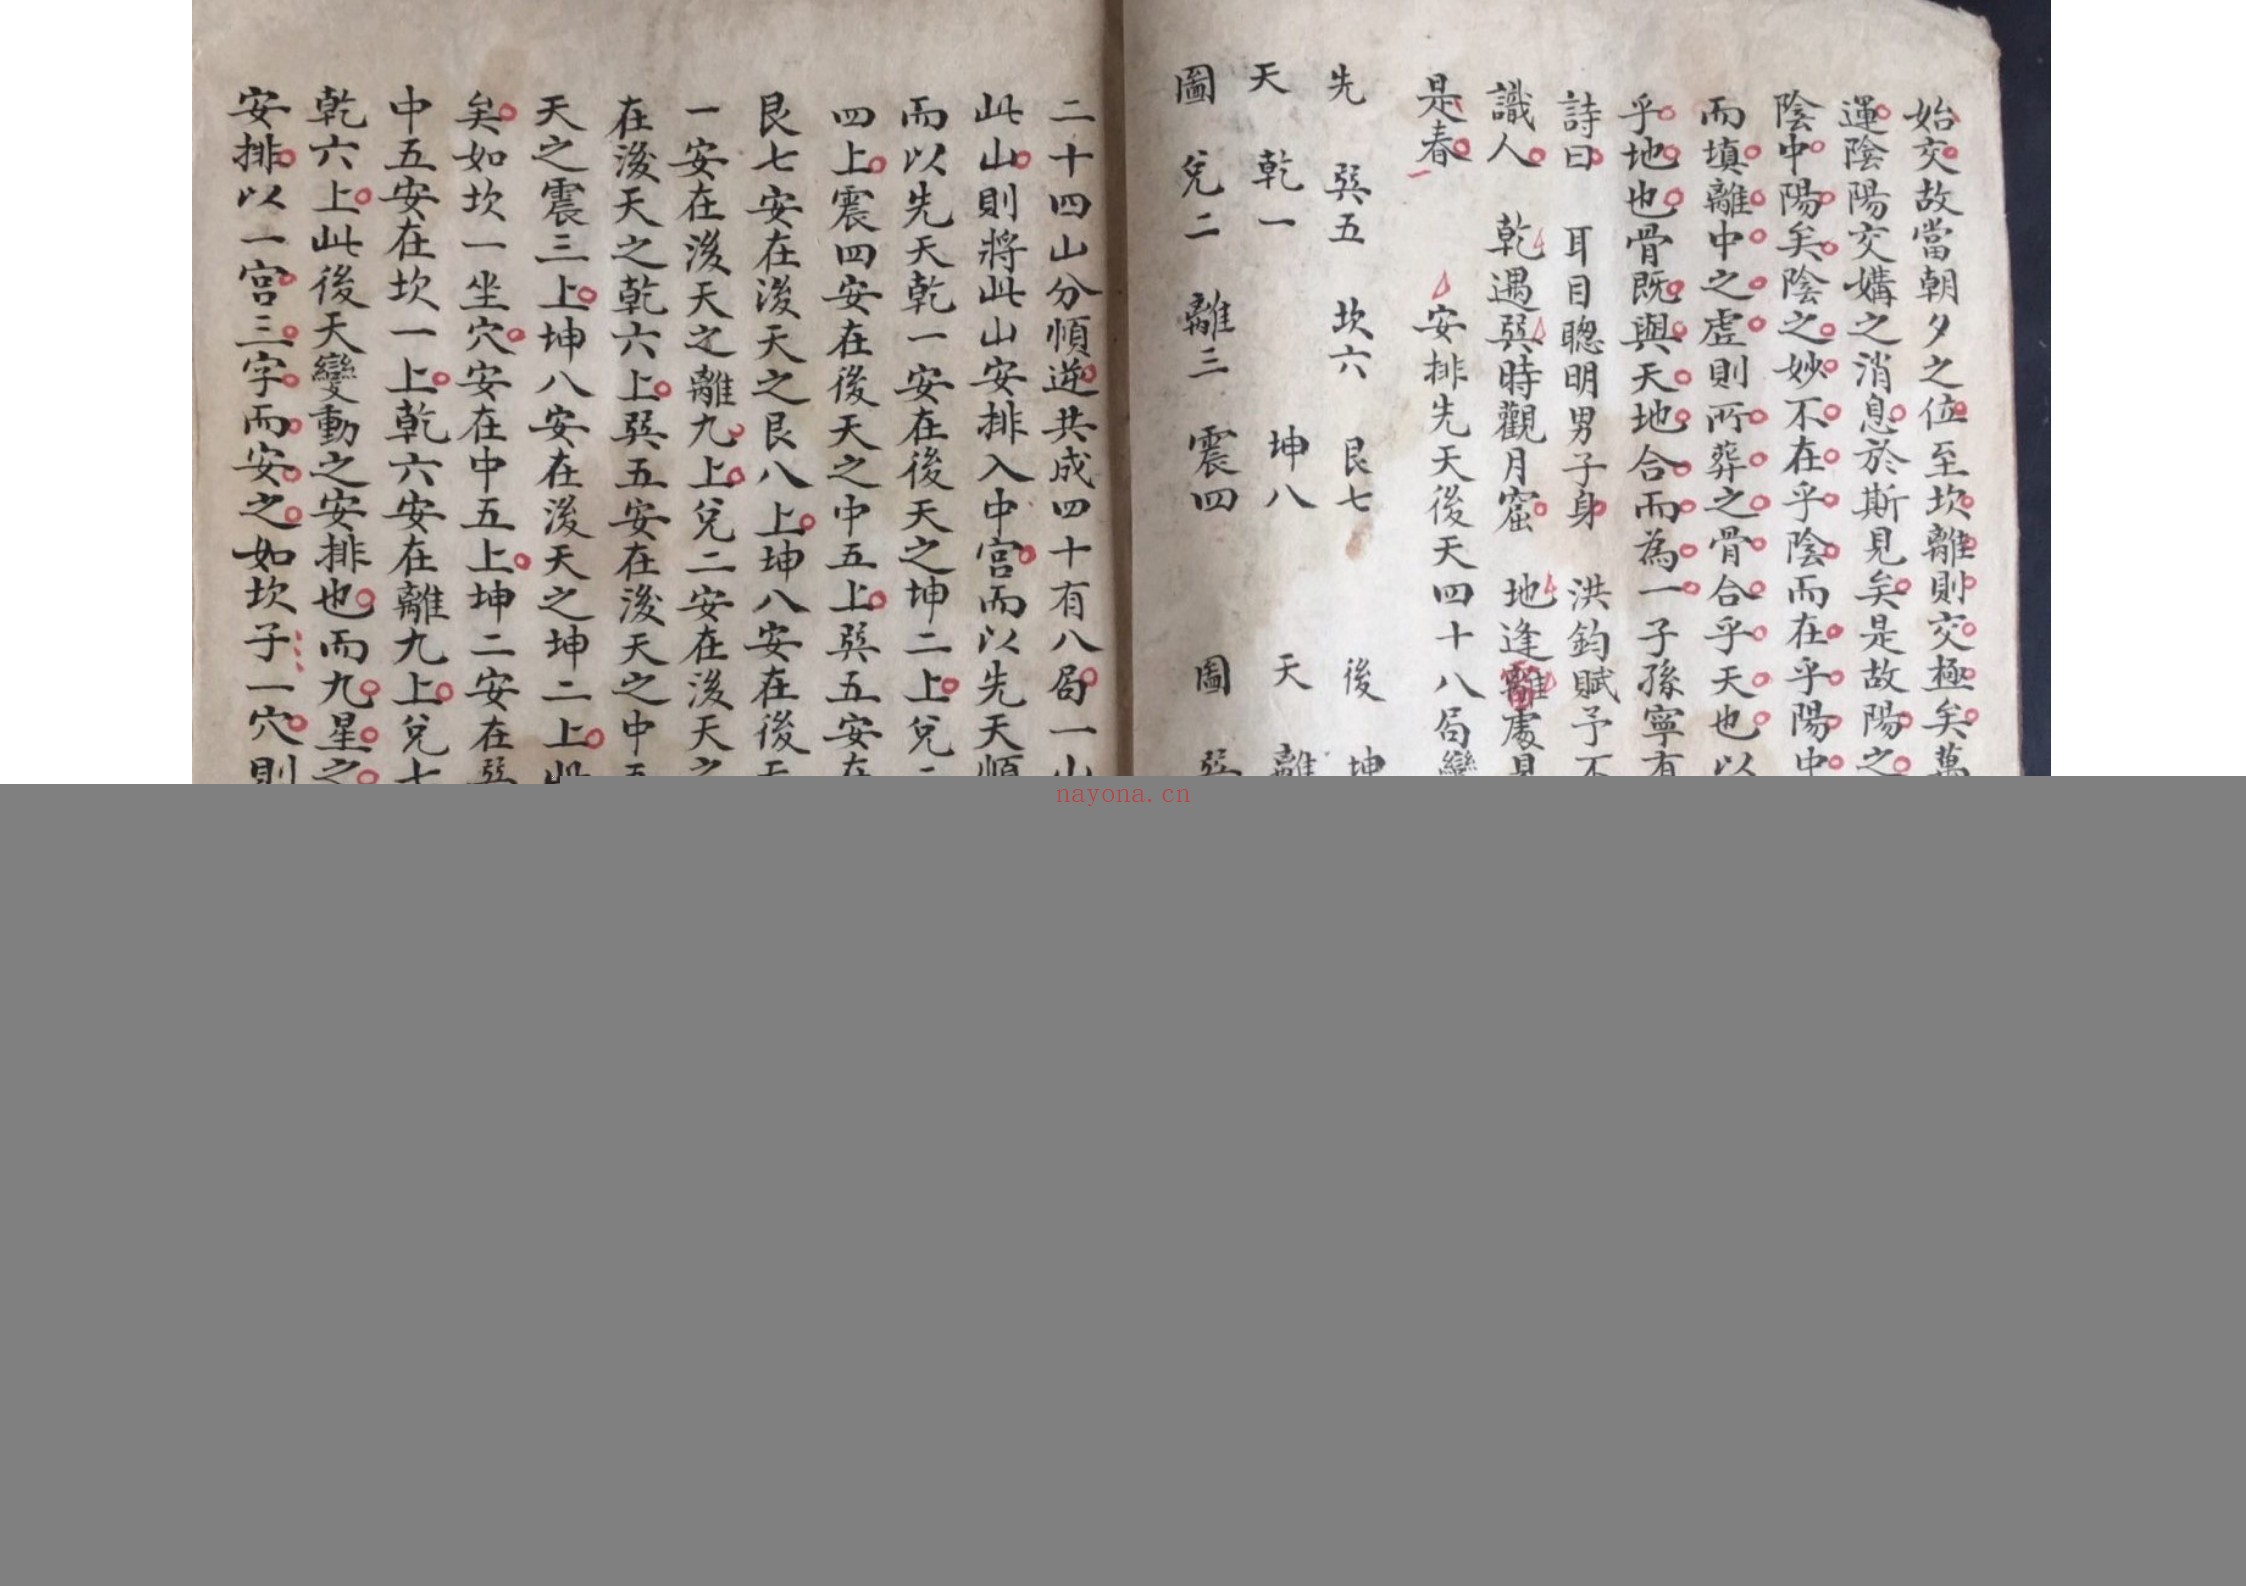 始交故當朝夕之位至坎離則交極矣萬
運陰陽交媾之消息於斯見矣是故陽之
陰中陽矣陰之妙不在乎陰而在乎陽中
而填離中之虛則所葬之骨合乎天也以
乎地也骨既與天地合而為一子孫寧有
詩曰 耳目聰明男子身 洪鈞賦予不
識人 乾遇巽時觀月窟 地逢處見
是春 安排先天後天四十八局變
先 巽五 坎六 艮七 後 坤
天 乾一 坤八 天 離
圖 兌二 離三 震四 圖 巽
二十四山分順逆共成四十有八局一山
此山則將此山安排入中宮而以先天順
而以先天乾一安在後天之坤二上兌二
四上震四安在後天之中五上巽五安在
艮七安在後天之艮八上坤八安在後天
一安在後天之離九上兌二安在後天之
在後天之乾六上巽五安在後天之中五
天之震三上坤八安在後天之坤二上此
矣如坎一坐穴安在中五上坤二安在巽
中五安在坎一上乾六安在離九上兌七
乾六上此後天變動之安排也而九星之
安排以一宮三字而安之如坎子一穴則
nayona.cn